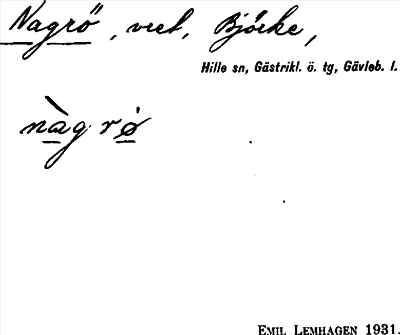 Nagrö, vret, Björke,
Hille sn, Gästrikl. ö. tg, Gävleb. l.
nàg rø̀
EMIL LEMHAGEN 1931.